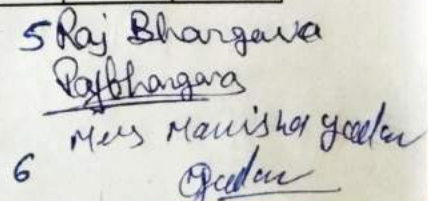 5 Raj Bhargava
Rajbhargava
Mrs Manisha Yadav
6
Yadav